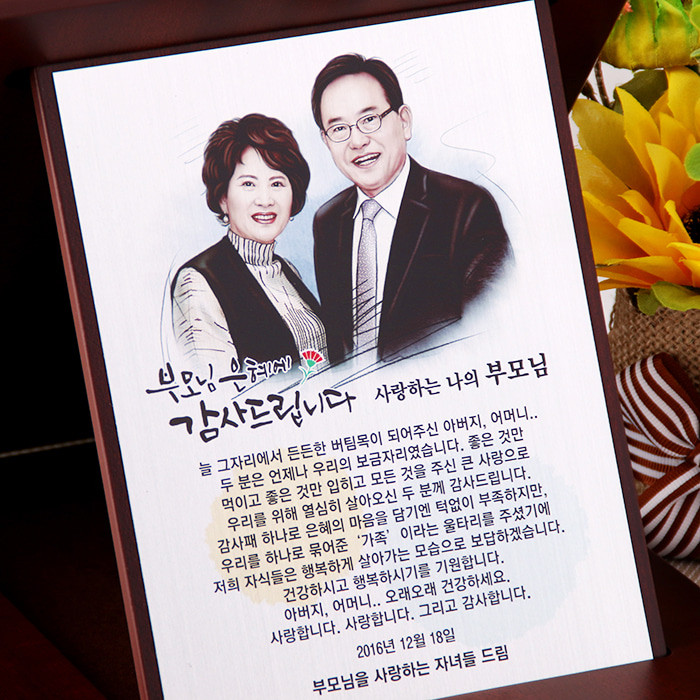 부모님 은혜에
감사드립니다
사랑하는 나의 부모님
늘 그자리에서 든든한 버팀목이 되어주신 아버지, 어머니..
두 분은 언제나 우리의 보금자리였습니다. 좋은 것만
먹이고 좋은 것만 입히고 모든 것을 주신 큰 사랑으로
우리를 위해 열심히 살아오신 두 분께 감사드립니다.
감사패 하나로 은혜의 마음을 담기엔 턱없이 부족하지만,
우리를 하나로 묶어준 ‘가족’ 이라는 울타리를 주셨기에
저희 자식들은 행복하게 살아가는 모습으로 보답하겠습니다.
건강하시고 행복하시기를 기원합니다.
아버지, 어머니.. 오래오래 건강하세요.
사랑합니다. 사랑합니다. 그리고 감사합니다.
2016년 12월 18일
부모님을 사랑하는 자녀들 드림